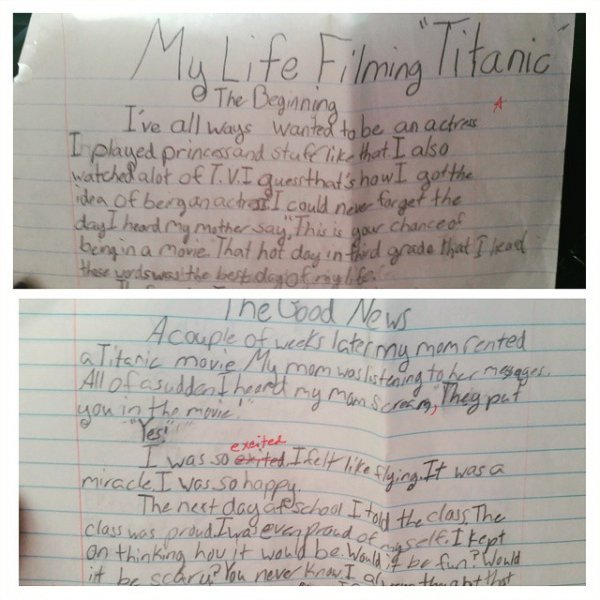 My Life Filming "Titanic"
The Beginning
A
I've all ways wanted to be an actress
I played princess and stuff like that. I also
watched alot of T.V. I guess that's how I got the
idea of berg an actress. I could never forget the
day I heard my mother say, "This is your chance of
being in a movie. That hot day in third grade that I head
these words was the best day of my life.
The Good News
A couple of weeks later my mom rented
a Titanic movie. My mom was listening to her messages.
All of a sudden I heard my mom scream, "They put
you in the movie!"
"Yes!"
excited
I was so exited. I felt like flying. It was a
miracle. I was so happy.
The next day at school I told the class. The
class was proud. I was even proud of myself. I kept
on thinking how it would be. Would it be fun? Would
it be scary? You never know. I thought that